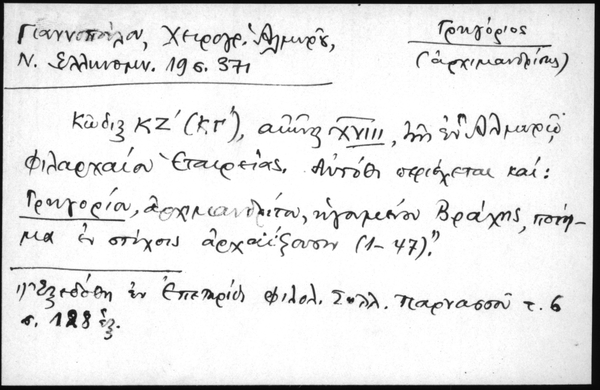 Γιαννοπούλου, Χειρόγρ. Ἁλμυροῦ,
Ν. Ἑλληνομν. 19 σ. 371
Γρηγόριος
(ἀρχιμανδρίτης)
Κῶδιξ ΚΖ΄ (ΚΓ΄), αἰῶνος XVIII, τῆς ἐν Ἁλμυρῷ
Φιλαρχαίου Ἑταιρείας. Αὐτόθι περιέχεται καί:
Γρηγορίου, ἀρχιμανδρίτου, ἡγουμένου Βράχης, ποίη-
μα ἐν στίχοις ἀρχαΐζουσιν (1-47)."
Ἐξεδόθη ἐν Ἐπετηρίδι Φιλολ. Συλλ. Παρνασσοῦ τ. 6
σ. 128 ἑξ.